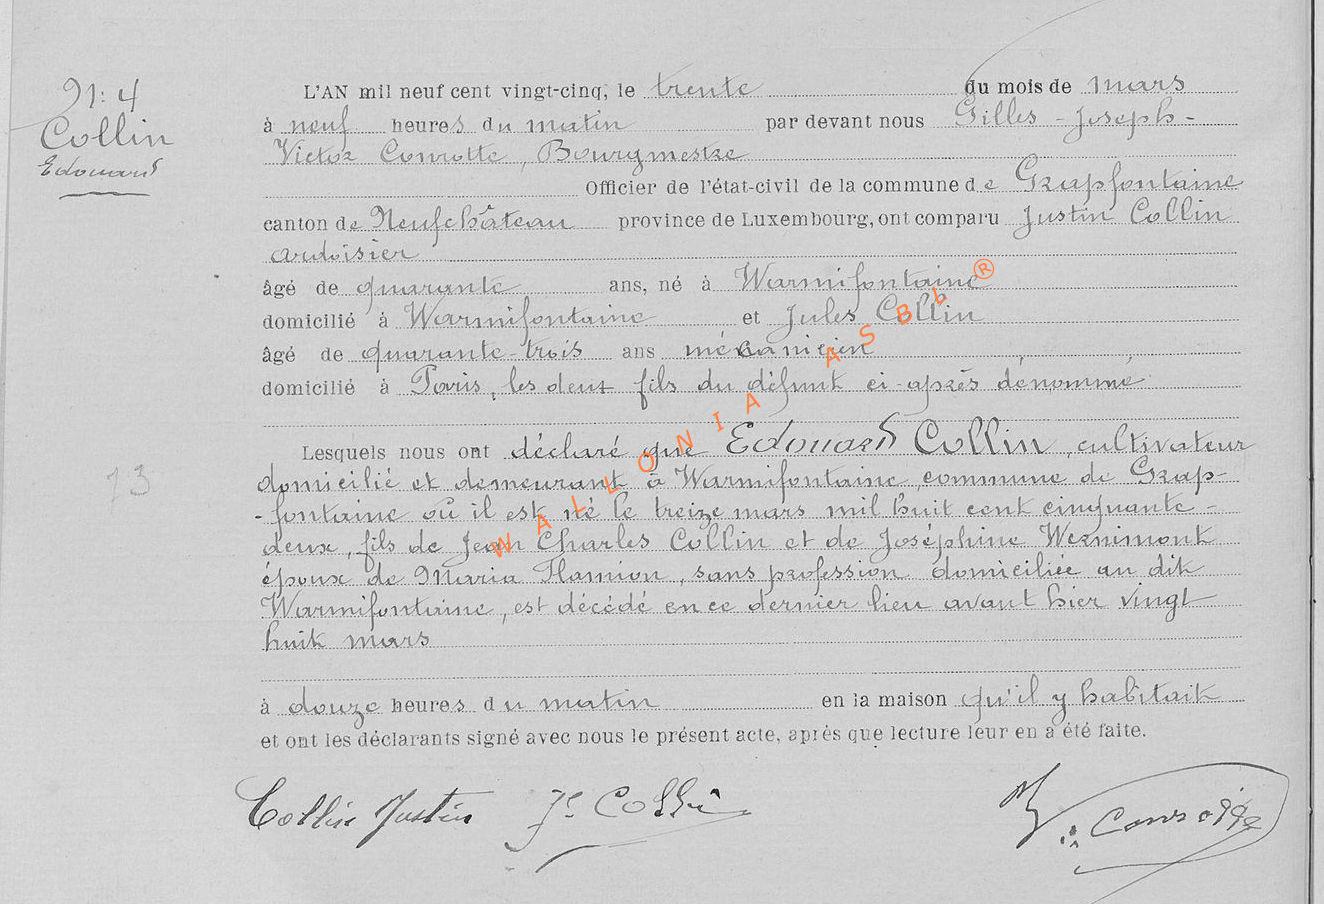 N: 4
Collin
Edouard
L'AN mil neuf cent vingt-cinq, le trente du mois de mars
à neuf heures du matin par devant nous Gilles-Joseph-
Victor Conrotte, Bourgmestre
Officier de l'état-civil de la commune de Grapfontaine
canton de Neufchâteau province de Luxembourg, ont comparu Justin Collin
ardoisier
âgé de quarante ans, né à Warmifontaine
domicilié à Warmifontaine et Jules Collin
âgé de quarante-trois ans mécanicien
domicilié à Paris, les deux fils du défunt ci-après dénommé
Lesquels nous ont déclaré que Edouard Collin, cultivateur
domicilié et demeurant à Warmifontaine, commune de Grap-
-fontaine où il est né le treize mars mil huit cent cinquante-
deux, fils de Jean Charles Collin et de Joséphine Wernimont
époux de Maria Hamion, sans profession domiciliée au dit
Warmifontaine, est décédé en ce dernier lieu avant hier vingt
huit mars
à douze heures du matin en la maison qu'il y habitait
et ont les déclarants signé avec nous le présent acte, après que lecture leur en a été faite.
Collin Justin Js Collin V. Conrotte
13
WALLONIA ASBL ®